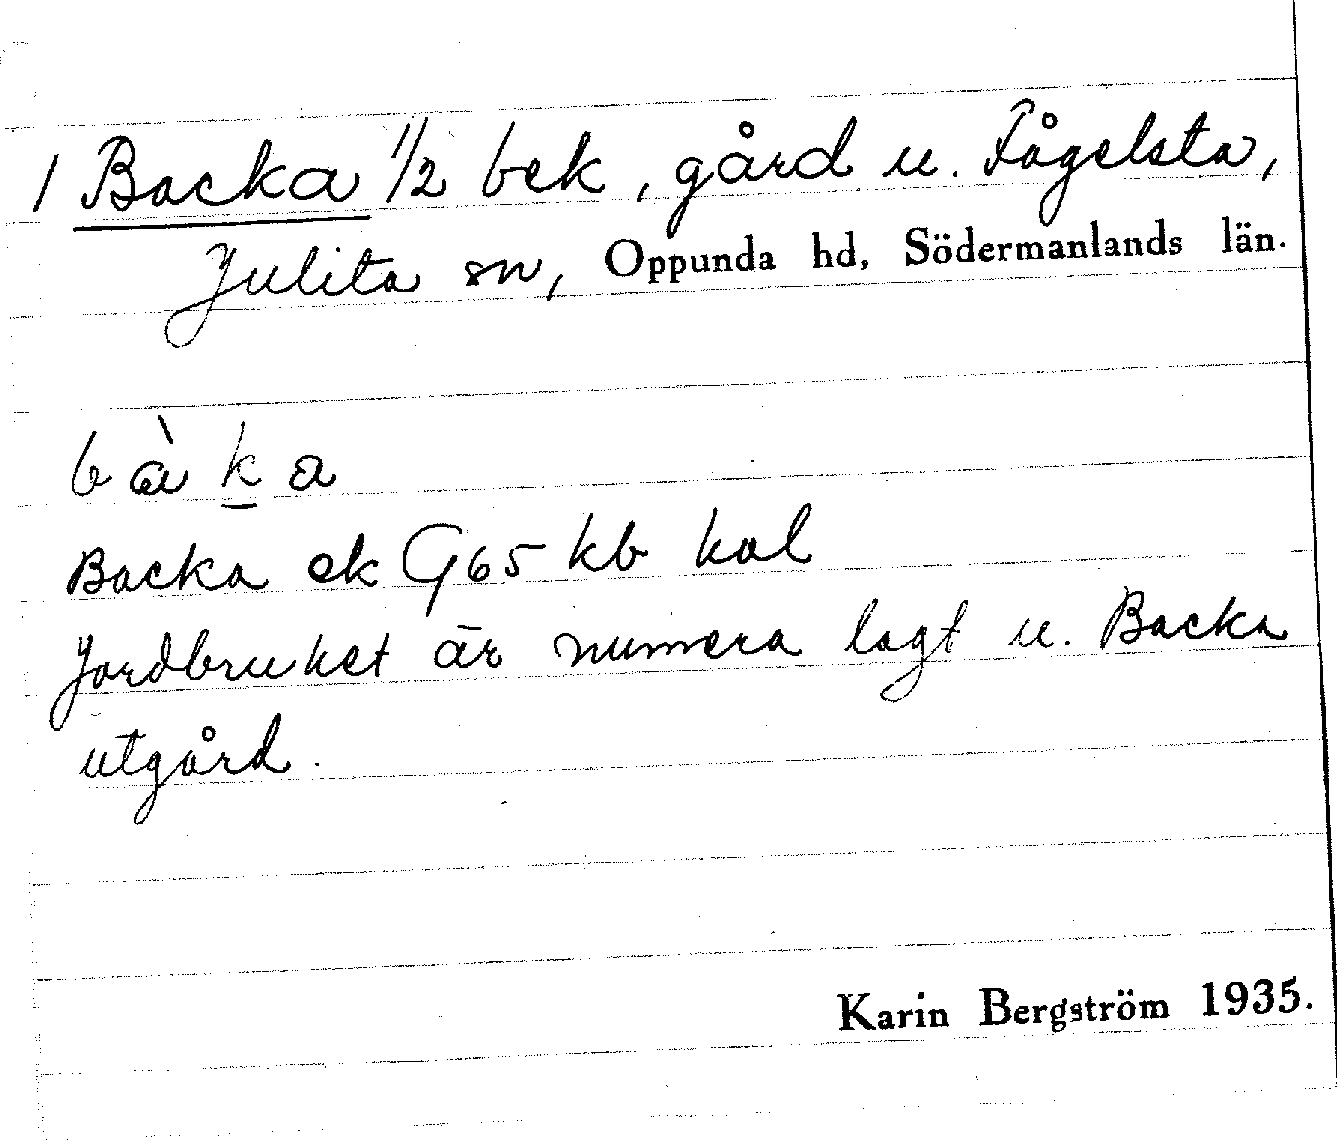 1 Backa 1/2 bek, gård u. Fågelsta,
Julita sn, Oppunda hd, Södermanlands län.
b à k a
Backa ek G65 kb kal
Jordbruket är numera lagt u. Backa
utgård.
Karin Bergström 1935.